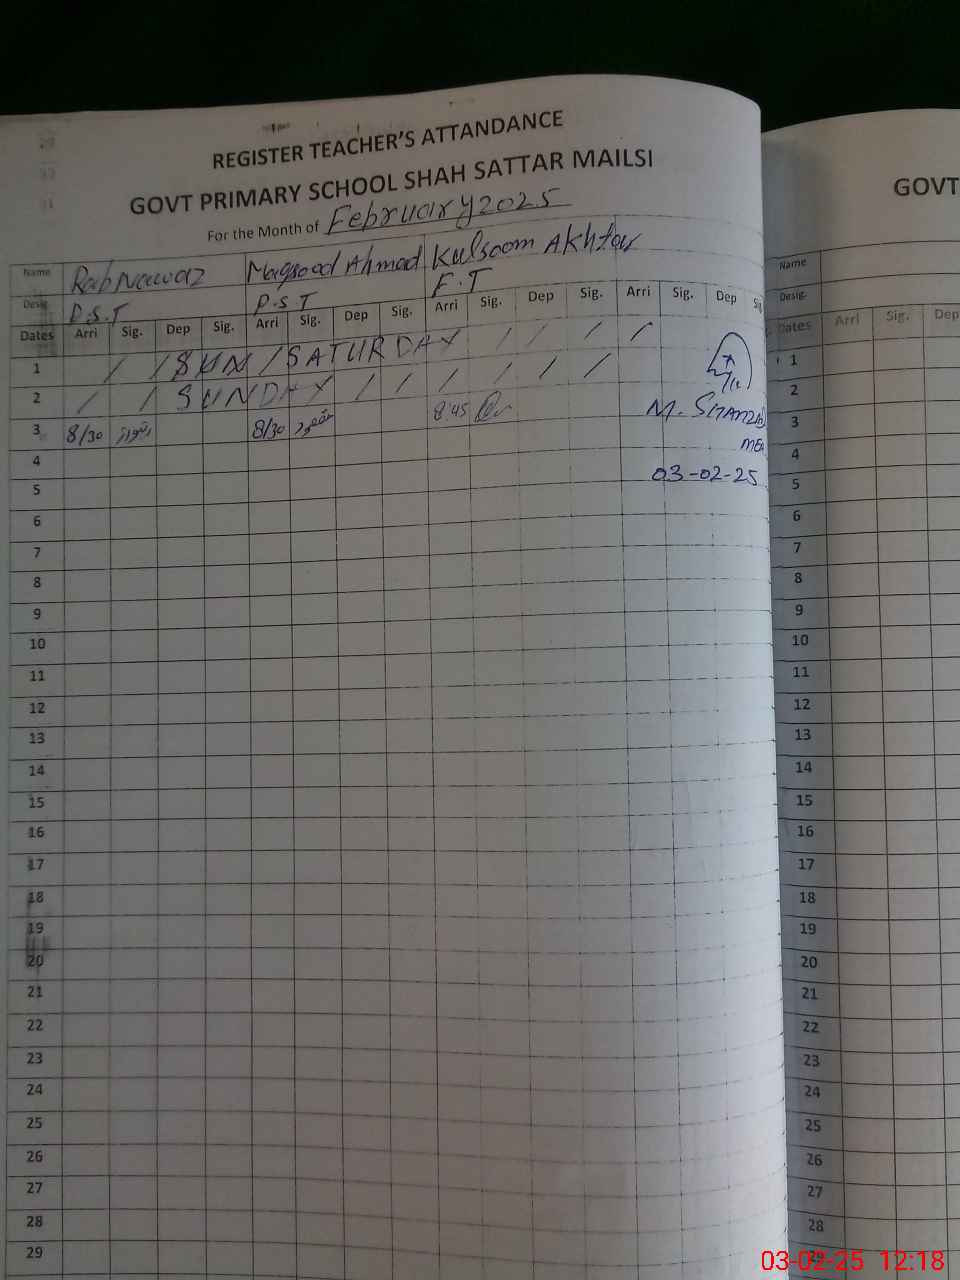 REGISTER TEACHER'S ATTANDANCE
GOVT PRIMARY SCHOOL SHAH SATTAR MAILSI
For the Month of February 2025
Name Rab Nawaz Maqsood Ahmad Kulsoom Akhtar
Desig. P.S.T P.S.T F.T
Dates Arri Sig. Dep Sig. Arri Sig. Dep Sig. Arri Sig. Dep Sig. Arri Sig. Dep
1 / / SUN / SATURDAY / / / /
2 / / SUNDAY / / / / / /
3 8/30 8/30 8:45
M.
03-02-25
4
5
6
7
8
9
10
11
12
13
14
15
16
17
18
19
20
21
22
23
24
25
26
27
28
29
GOVT
Name
Desig.
Dates Arri Sig. Dep
1
2
3
4
5
6
7
8
9
10
11
12
13
14
15
16
17
18
19
20
21
22
23
24
25
26
27
28
29
03-02-25 12:18